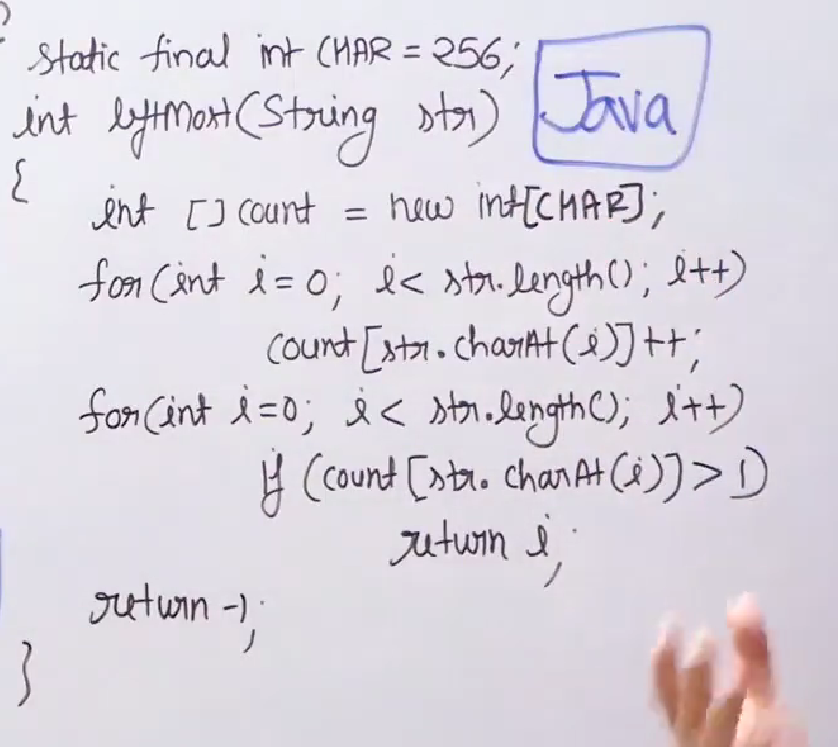 static final int CHAR = 256;
Java
int leftMost(String str)
{
int [] count = new int[CHAR];
for(int i=0; i< str.length(); i++)
count[str.charAt(i)]++;
for(int i=0; i< str.length(); i++)
if (count[str.charAt(i)]>1)
return i;
return -1;
}